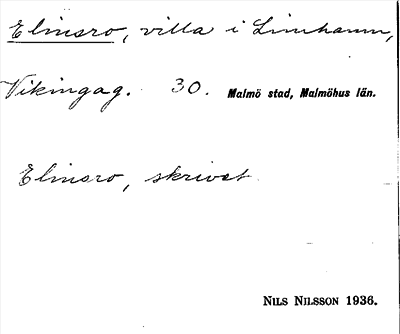 Elinsro, villa i Limhamn,
Vikingag. 30. Malmö stad, Malmöhus län.
Elinsro, skrivet
NILS NILSSON 1936.